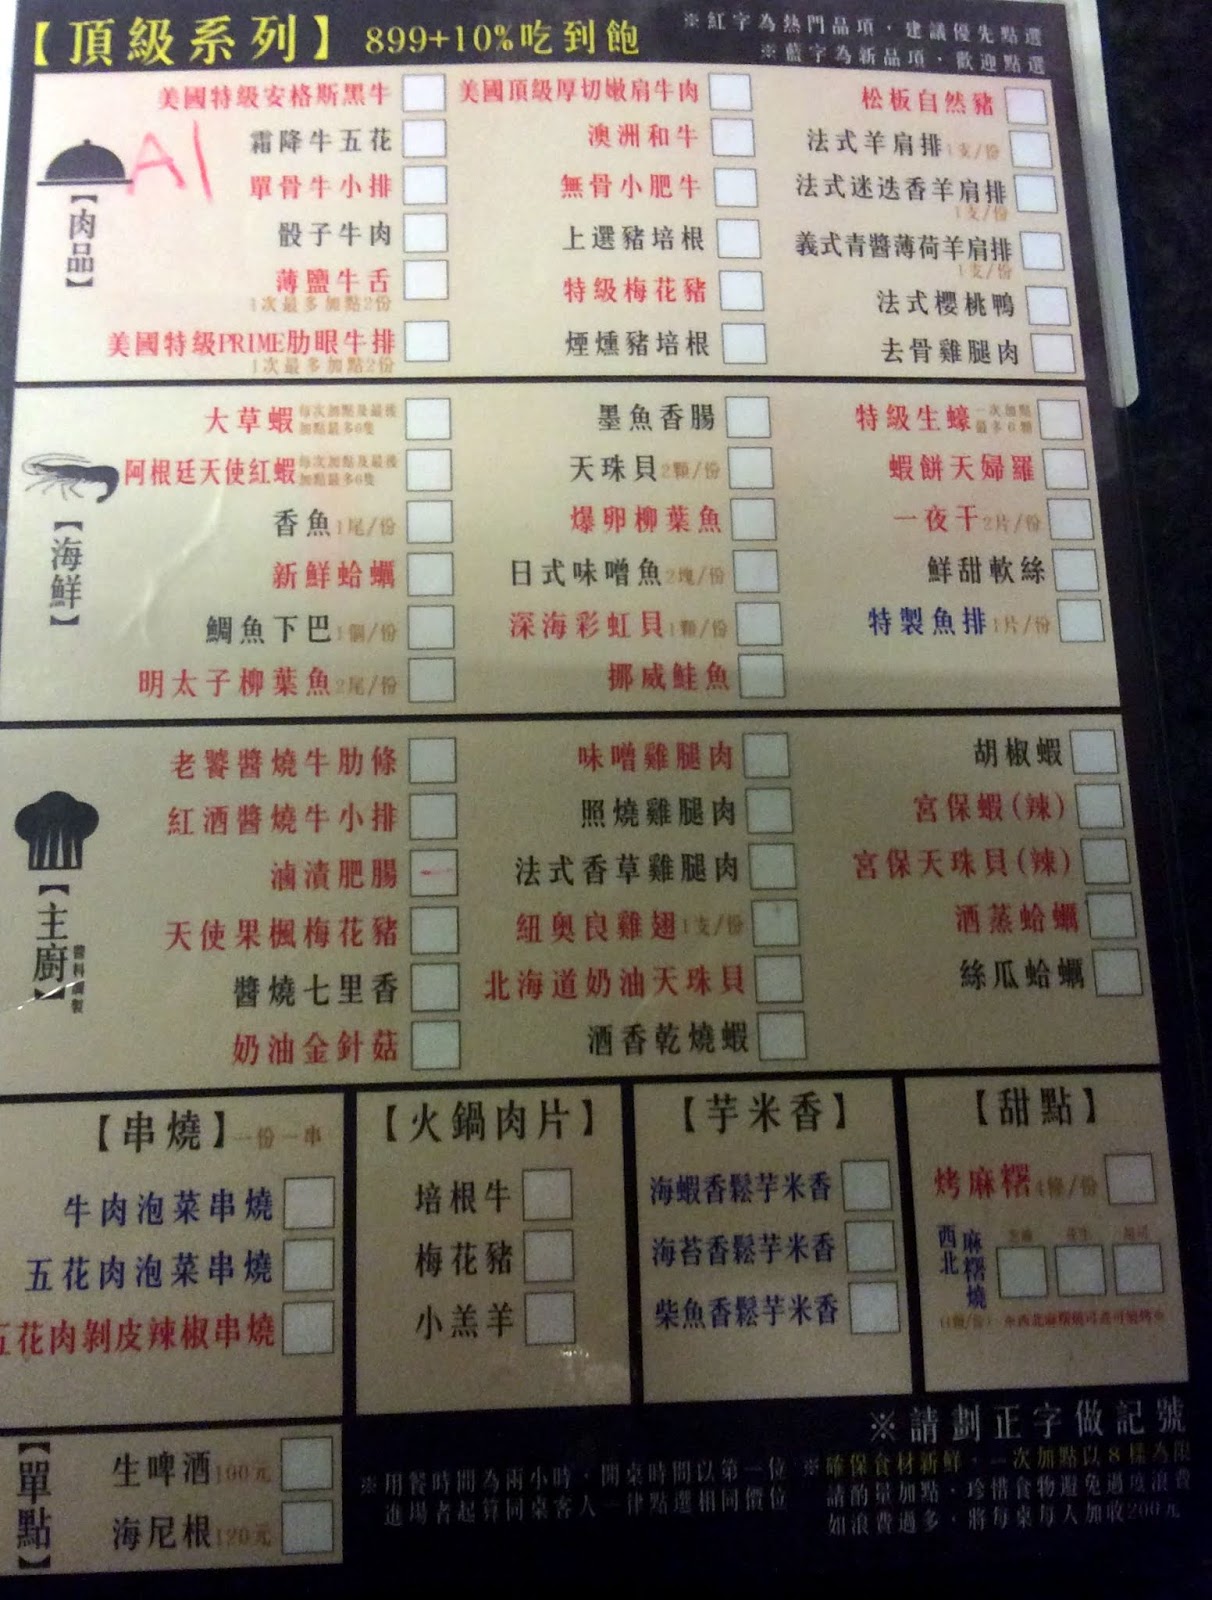 【頂級系列】 899+10%吃到飽
※紅字為熱門品項，建議優先點選
※藍字為新品項，歡迎點選
A1
【肉品】
美國特級安格斯黑牛
霜降牛五花
單骨牛小排
骰子牛肉
薄鹽牛舌
1次最多加點2份
美國特級PRIME肋眼牛排
1次最多加點2份
美國頂級厚切嫩肩牛肉
澳洲和牛
無骨小肥牛
上選豬培根
特級梅花豬
煙燻豬培根
松板自然豬
法式羊肩排1支/份
法式迷迭香羊肩排
1支/份
義式青醬薄荷羊肩排
1支/份
法式櫻桃鴨
去骨雞腿肉
【海鮮】
大草蝦 每次加點及最後
加點最多6隻
阿根廷天使紅蝦 每次加點及最後
加點最多6隻
香魚1尾/份
新鮮蛤蠣
鯛魚下巴1個/份
明太子柳葉魚2尾/份
墨魚香腸
天珠貝2顆/份
爆卵柳葉魚
日式味噌魚2塊/份
深海彩虹貝1顆/份
挪威鮭魚
特級生蠔 一次加點
最多6顆
蝦餅天婦羅
一夜干2片/份
鮮甜軟絲
特製魚排1片/份
【主廚】
老饕醬燒牛肋條
紅酒醬燒牛小排
滷漬肥腸
天使果楓梅花豬
醬燒七里香
奶油金針菇
味噌雞腿肉
照燒雞腿肉
法式香草雞腿肉
紐奧良雞翅1支/份
北海道奶油天珠貝
酒香乾燒蝦
胡椒蝦
宮保蝦(辣)
宮保天珠貝(辣)
酒蒸蛤蠣
絲瓜蛤蠣
【串燒】一份一串
牛肉泡菜串燒
五花肉泡菜串燒
五花肉剝皮辣椒串燒
【火鍋肉片】
培根牛
梅花豬
小羔羊
【芋米香】
海蝦香鬆芋米香
海苔香鬆芋米香
柴魚香鬆芋米香
【甜點】
烤麻糬4條/份
西北麻糬燒
【單點】
生啤酒100元
海尼根120元
※請劃正字做記號
※用餐時間為兩小時，開桌時間以第一位
進場者起算同桌客人一律點選相同價位
※確保食材新鮮，一次加點以8樣為限
請酌量加點，珍惜食物避免過度浪費
如浪費過多，將每桌每人加收200元